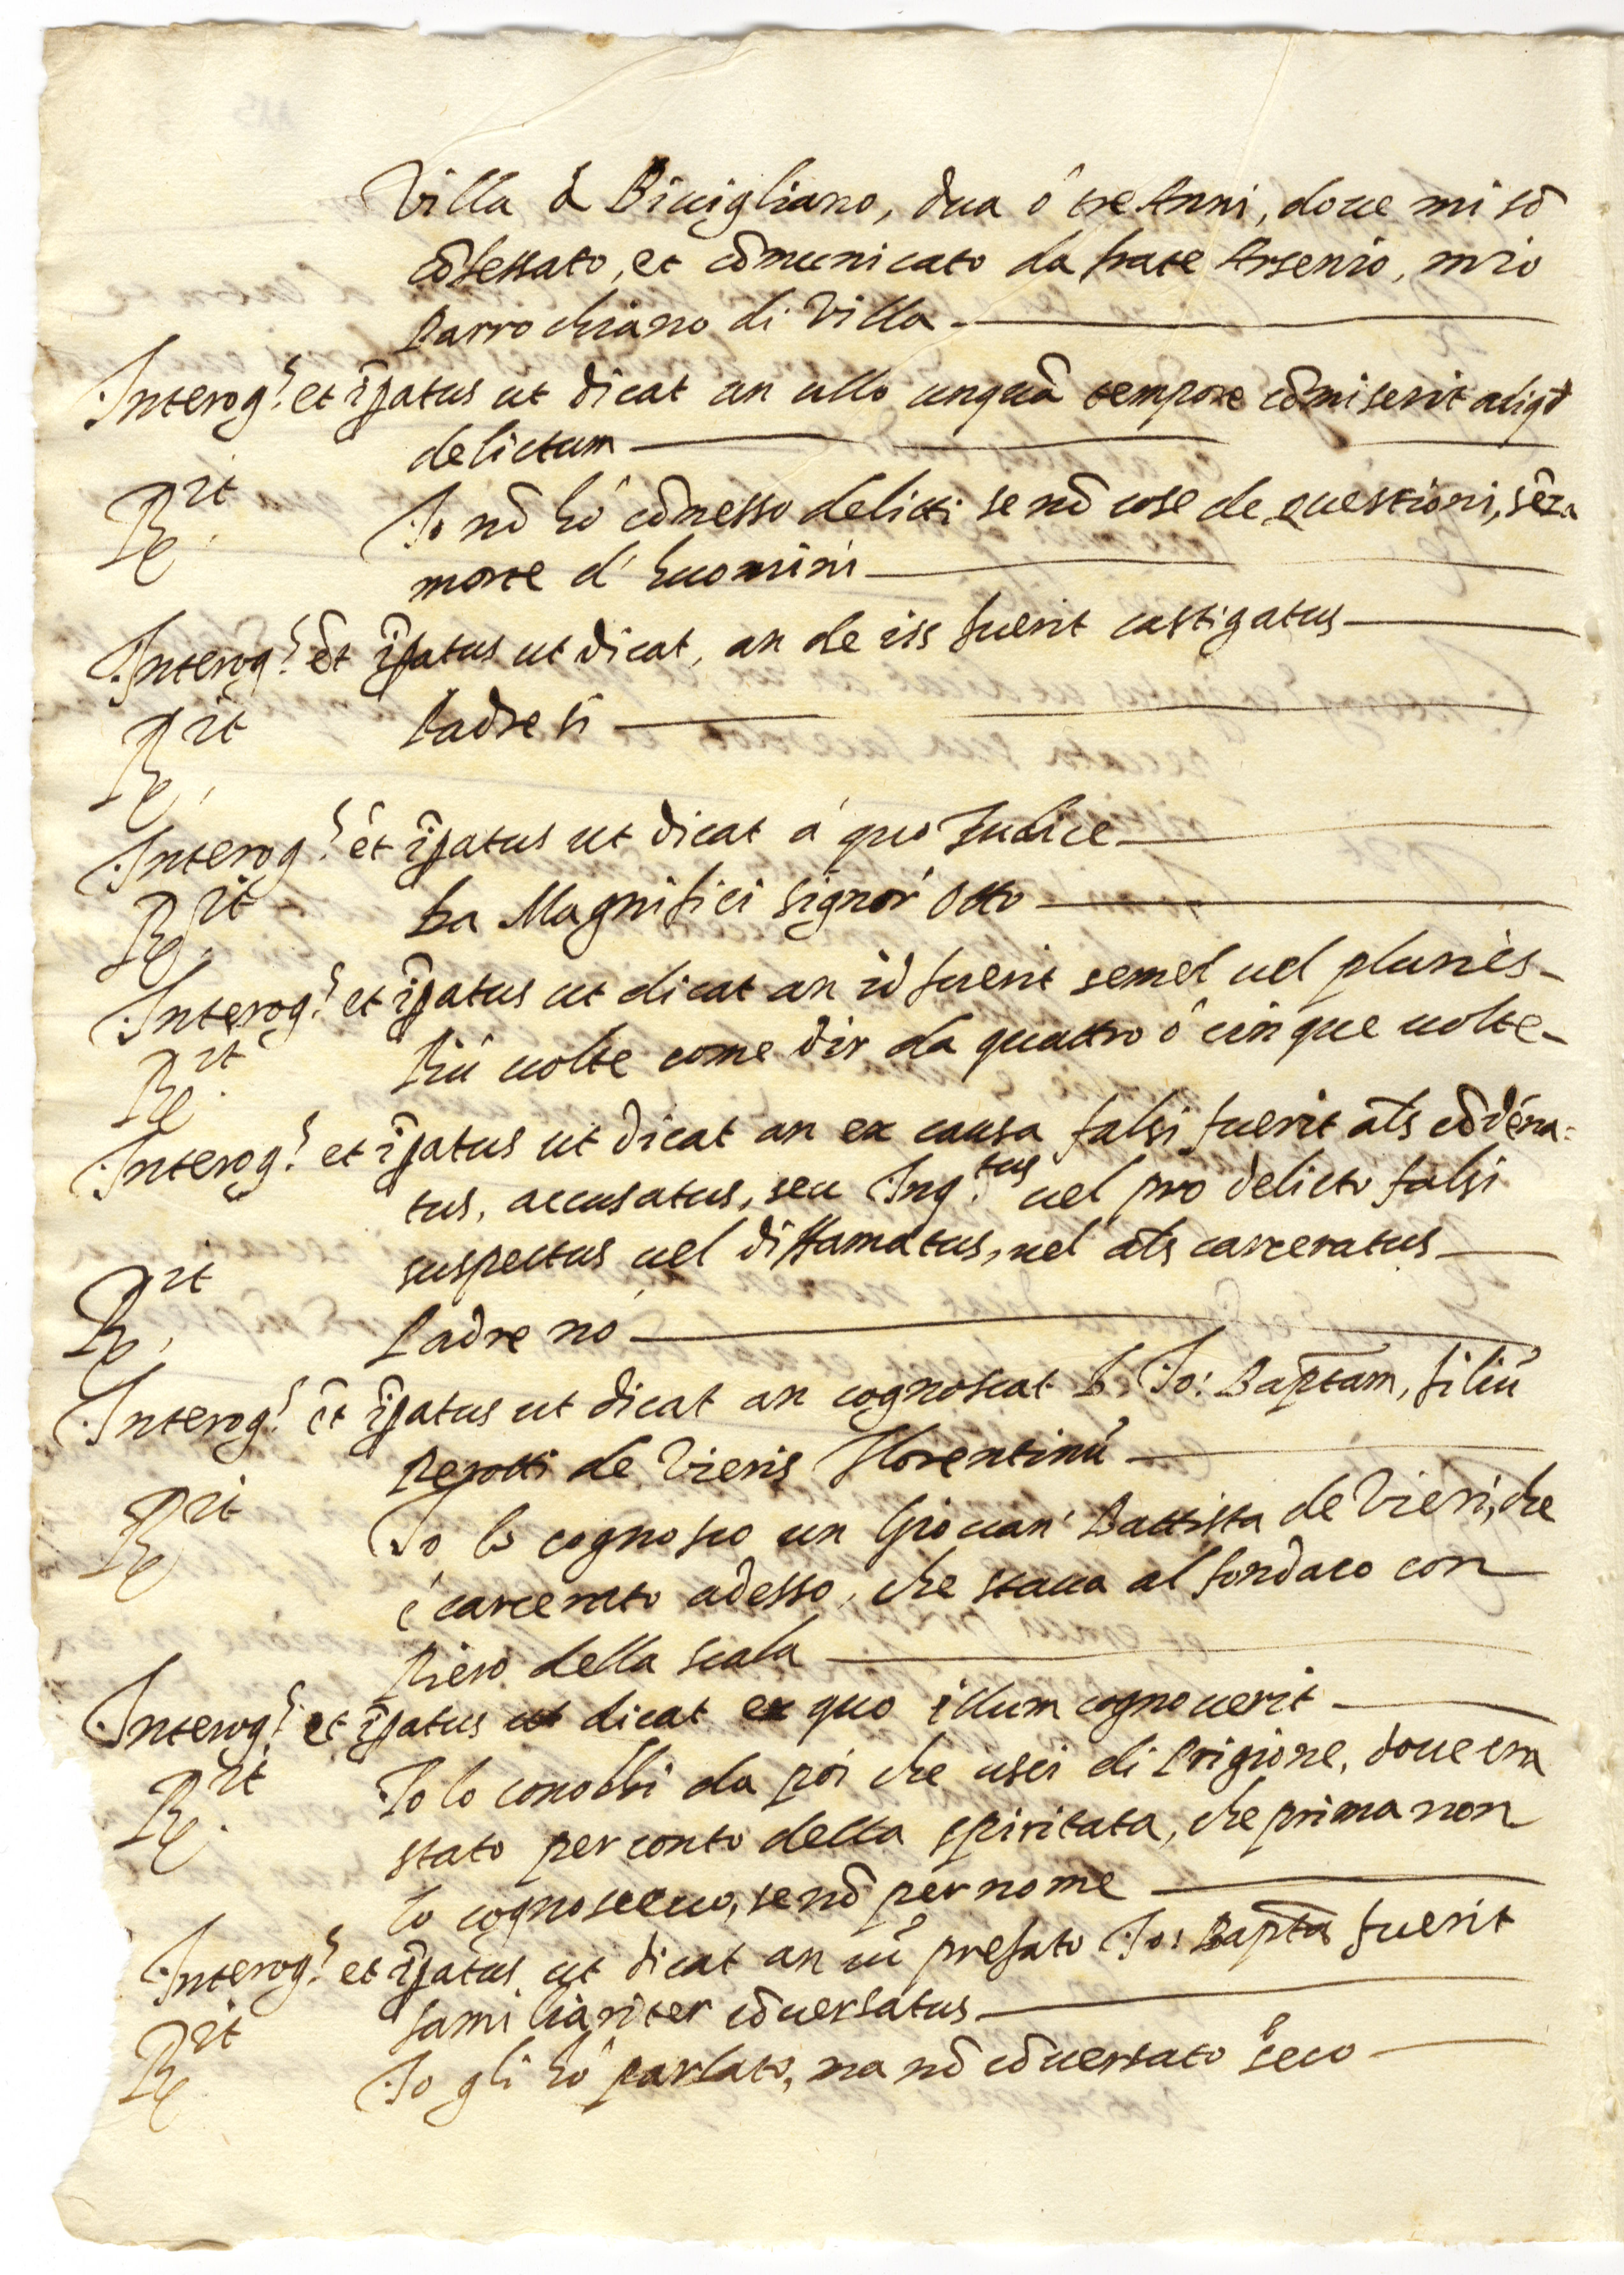 Villa d Biuigliano, dua ô tre Anni, doue mi sō
cōfessato, et cōmunicato da frate Arsenio, mio
Parrochiano di Villa
Interog.s et ip̄atus ut dicat an ullo unquā tempore cōmiserit aliqd
delictum
Rit Io nō hò cōmesso delitti se nō cose de questioni, sēza
Re.
morte d' huomini
Interog.s et ip̄atus ut dicat, an de iis fuerit castigatus
Rit Padre si
Re.
Interog.s et ip̄atus ut dicat á quo Iudice
Rit Da Magnifici Signor' Otto
Re.
Interog.s et ip̄atus ut dicat an id fuerit semel uel pluriès
Rit Più uolte come dir da quattro ô cinque uolte
Re.
Interog.s et ip̄atus ut dicat an ex causa falsi fuerit als cōdēna=
tus, accusatus, seu Inq.tus uel pro delicto falsi
suspectus uel diffamatus, uel als carceratus
Rit Padre nò
Re.
Interog.s et ip̄atus ut dicat an cognoscat D. Io: Baptam, filiū
Perotti de Vieris Florentinū
Rit Io lo cognosco un Giouan' Battista de Vieri, che
Re
è carcerato adesso, che staua al fondaco con
Piero della Scala
Interog.s et ip̄atus ut dicat ex quo illum cognouerit
Rit Io lo conobbi da poi che usci di Prigione, doue era
Re.
stato per conto della spiritata, che prima non
lo cognosceuo, se nō per nome
Interog.s et ip̄atus ut dicat an cū prefato Io: Bapta fuerit
familiariter cōuersatus
Rit Io gli hò parlato, ma nō cōuersato seco
Re.